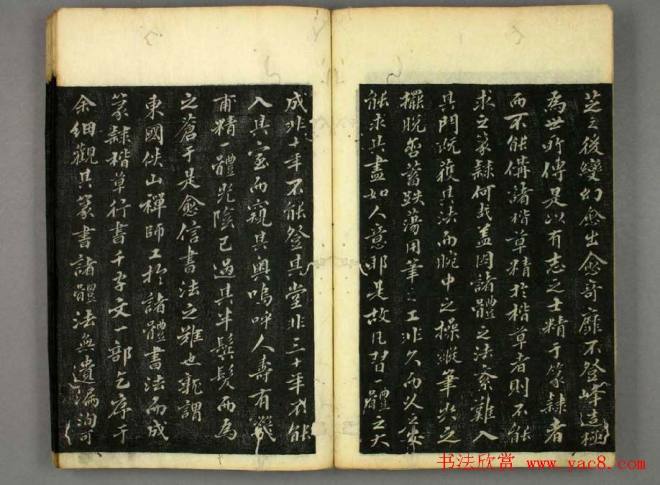 芝之後變幻愈出愈奇靡不登峰造極
為世所傳是以有志之士精于篆隸者
而不能備諸楷草精於楷草者則不能
求之篆隸何哉盖因諸體之法奈難入
其門既獲其法而腕中之操縱筆外之
擺脱啓蓄跌蕩用筆之工非久而必莫
能求其盡如人意耶是故凡習一體之大
成非十年不能登其堂非三十年不能
入其室而窺其奥嗚呼人壽有幾
甫精一體光陰已過其半鬓髮而為
之蒼于是愈信書法之難也孰謂
東國佚山禪師工於諸體書法而成
篆隸楷草行書千字文一部乞序于
余細觀其篆書諸體法無遺漏洵可
书法欣赏 www.yac8.com